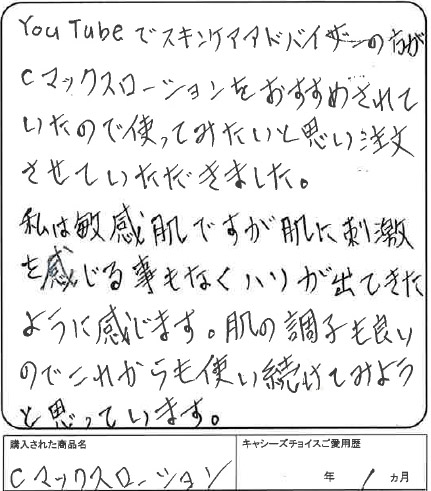 YouTubeでスキンケアアドバイザーの方が
Cマックスローションをおすすめされて
いたので使ってみたいと思い注文
させていただきました。
私は敏感肌ですが肌に刺激
を感じる事もなくハリが出てきた
ように感じます。肌の調子も良い
のでこれからも使い続けてみよう
と思っています。
購入された商品名
キャシーズチョイスご愛用歴
Cマックスローション
年 1 ヵ月